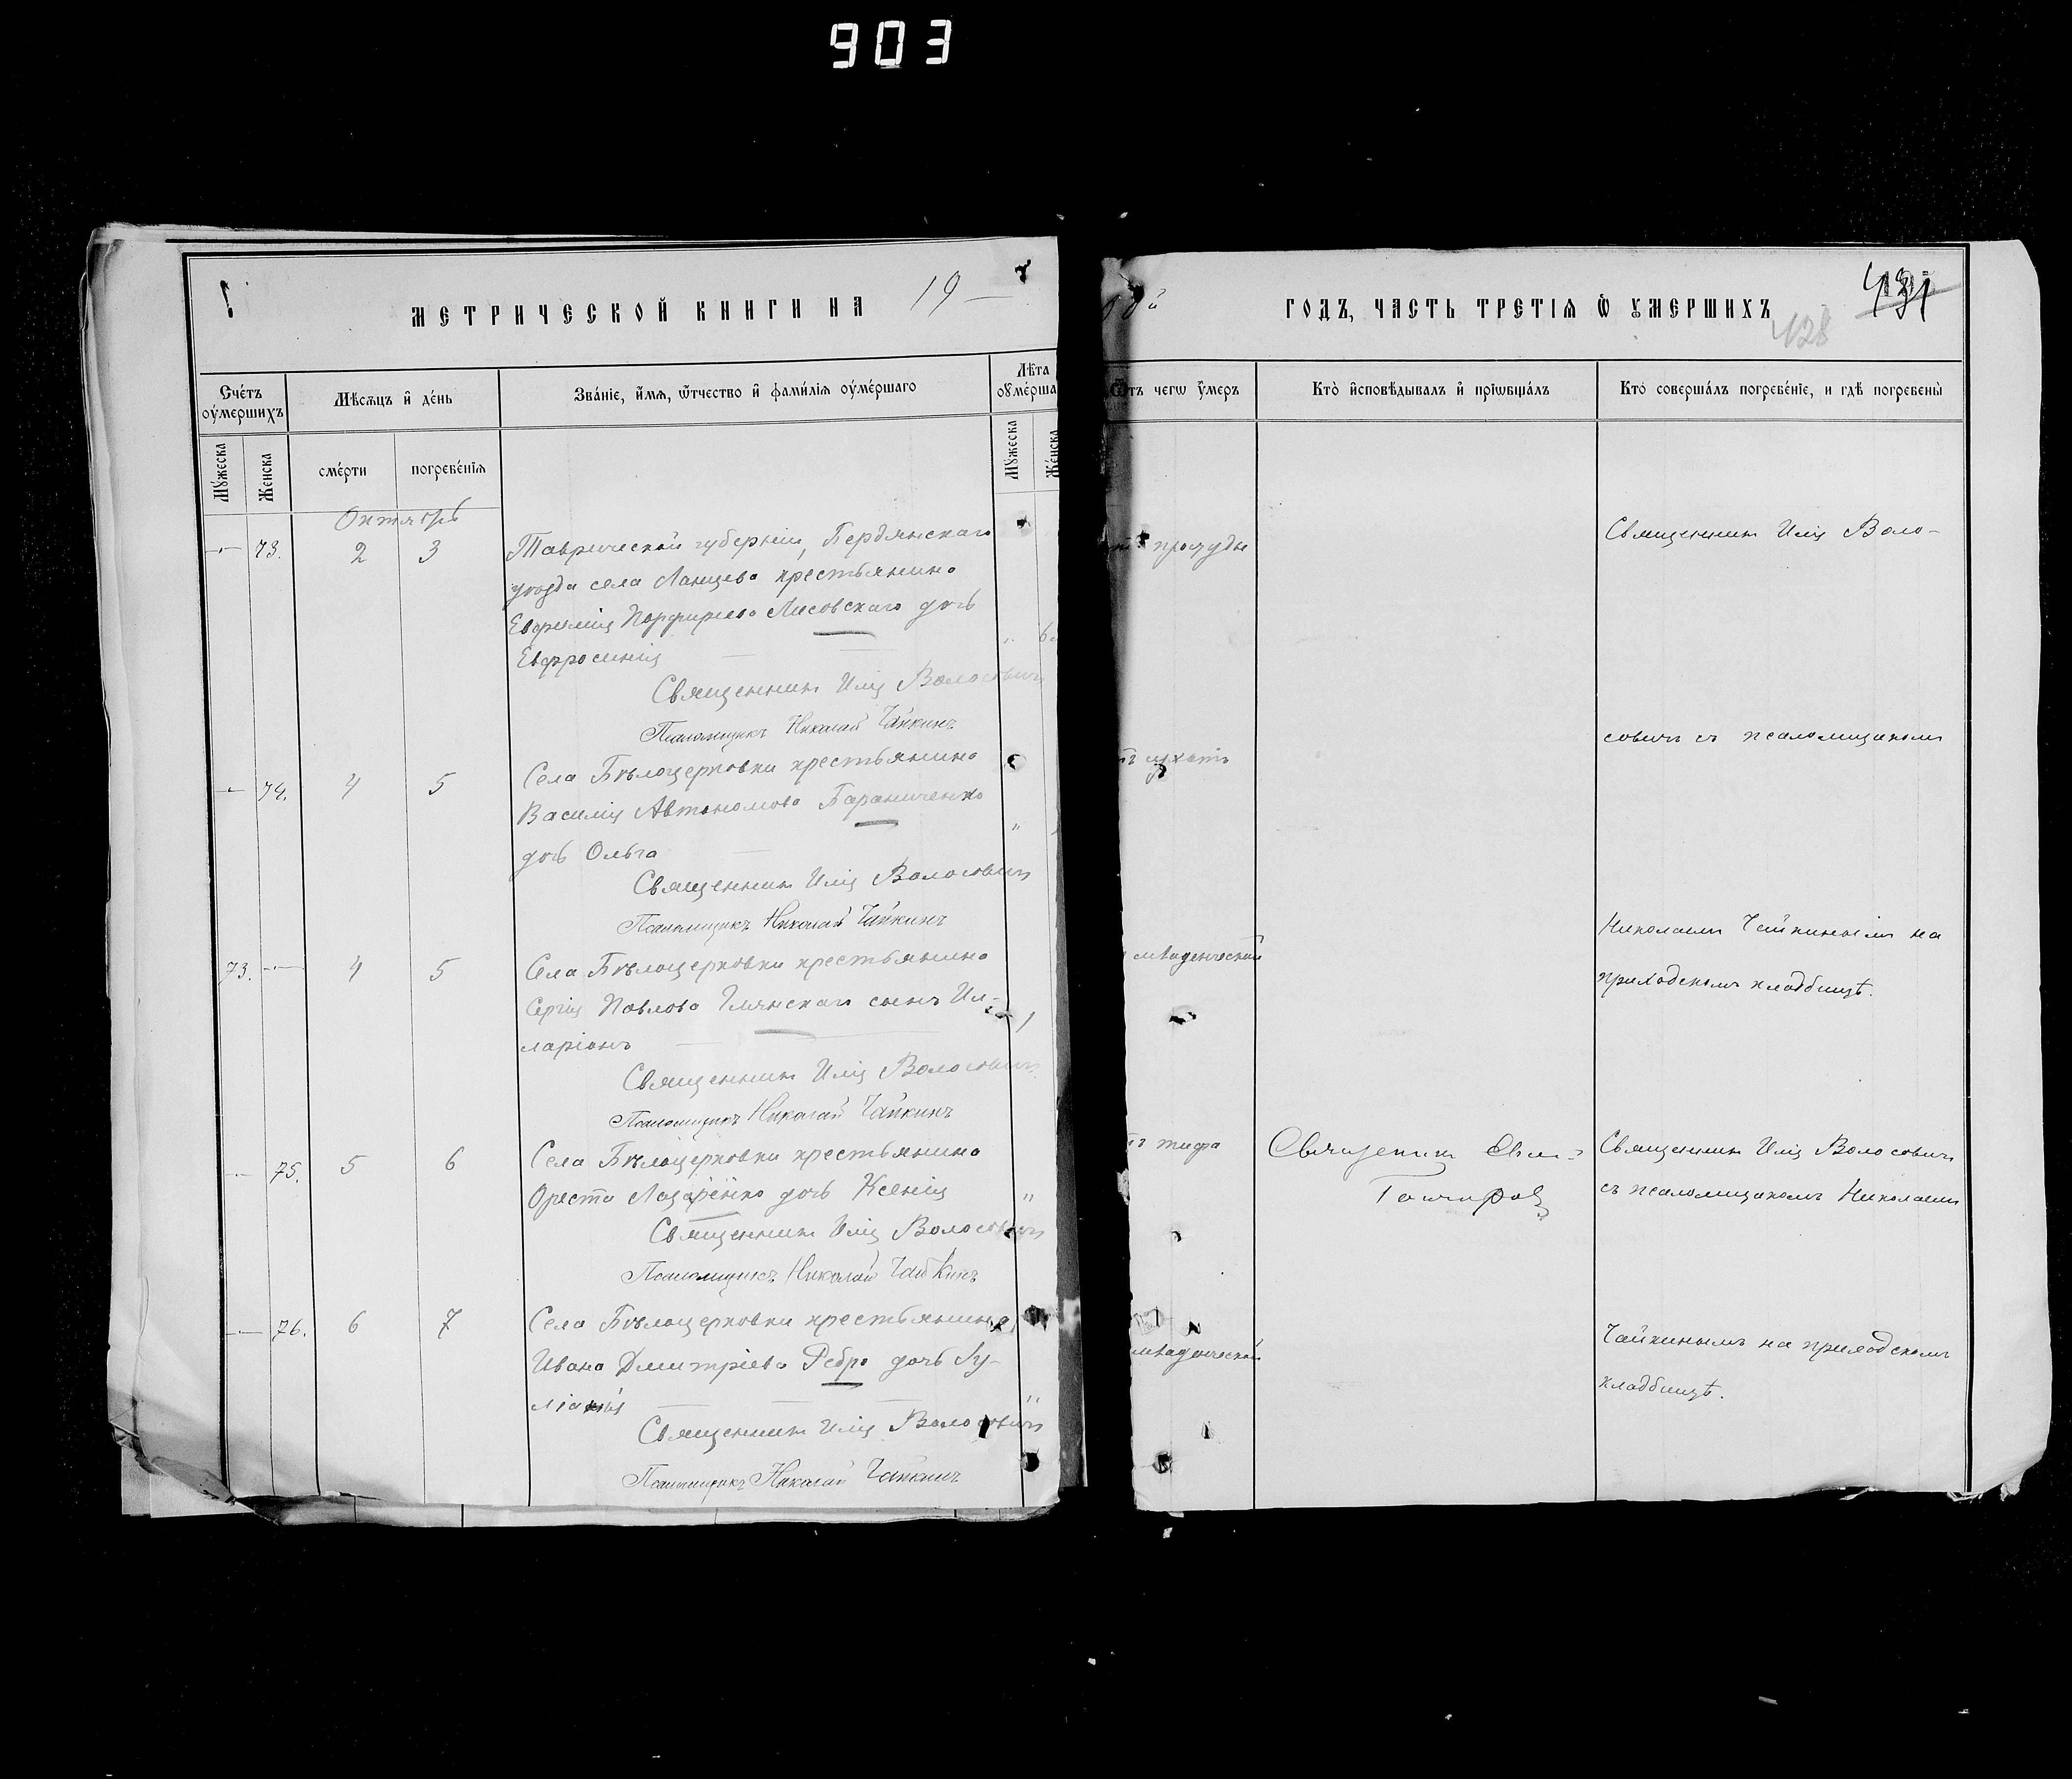 903
МЕТРИЧЕСКОЙ КНИГИ НА 19
Счетъ оумершихъ
Мѣсяцъ и день
Званіе, имя, отчество и фамилія оумершаго
Лѣта оумерша
Мужеска
Женска
смерти
погребенія
Мужеска
Женска
Октябрь
73. 2 3 Таврической губерніи, Бердянскаго
уѣзда села Ланцева крестьянина
Евфимія Порфирьева Лисовскаго дочь
Евфросинія
Священникъ Илія Волосовичъ
Псаломщикъ Николай Чайкинъ
74. 4 5 Села Бѣлоцерковки крестьянина
Василія Автономова Бараниченко
дочь Ольга
Священникъ Илія Волосовичъ
Псаломщикъ Николай Чайкинъ
73. 4 5 Села Бѣлоцерковки крестьянина
Сергія Павлова сынъ Ил-
ларіонъ 1
Священникъ Илія Волосовичъ
Псаломщикъ Николай Чайкинъ
75. 5 6 Села Бѣлоцерковки крестьянина
Ореста Лазаренко дочь Ксенія
Священникъ Илія Волосовичъ
Псаломщикъ Николай Чайкинъ
76. 6 7 Села Бѣлоцерковки крестьянина
Ивана Дмитріева Ребро дочь Іу-
ліанія
Священникъ Илія Волосовичъ
Псаломщикъ Николай Чайкинъ
ГОДЪ, ЧАСТЬ ТРЕТІЯ Ѿ УМЕРШИХЪ
431
428
Ѿтъ чегѡ умеръ
Кто исповѣдывалъ и пріобщалъ
Кто совершалъ погребеніе, и гдѣ погребены
простуды
Священникъ Илія Воло-
совичъ съ псаломщикомъ
младенческой
Николаемъ Чайкинымъ на
приходскомъ кладбищѣ.
тифа
Священникъ
Священникъ Илія Волосовичъ
съ псаломщикомъ Николаемъ
младенческой
Чайкинымъ на приходскомъ
кладбищѣ.